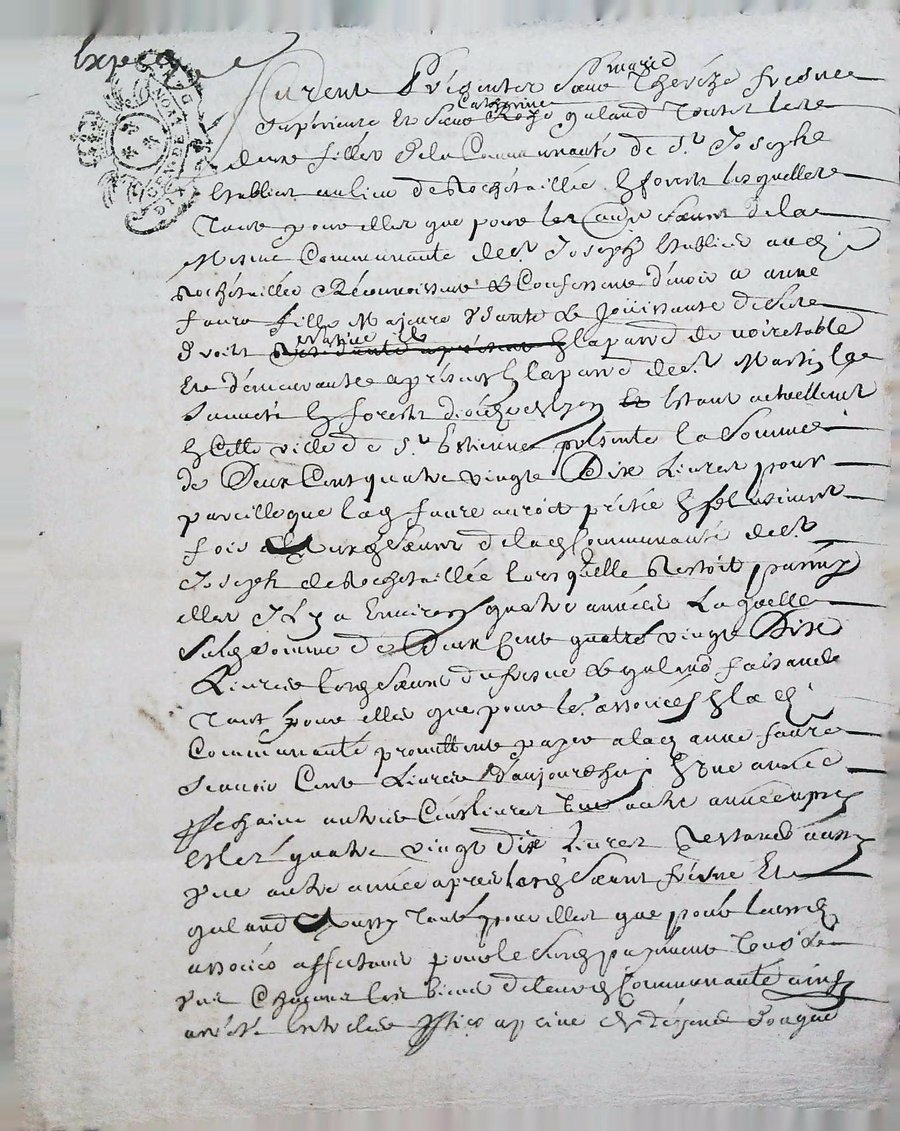 Expedié
GÑALITÉ DE LYON DIX DEN
furent Présentes Sœur marie Thereze fresnee
supérieure Et Sœur Catherine Roze galand Toutes les
deux filles de la Communauté de St Joseph
Establies au lieu de Rochetaillée En forest lesquelles
Tant pour elles que pour les autres Sœurs de la
Mesme Communauté de St Joseph Establies aud
Rochetaillée Reconnoissent & Confessent devoir a anne
faure fille Majeure Usante & Joüissante de Ses
droits native de la parre de noiretable
Et demeurantes apresent En la parre de St Martin les
En forest diocèse de Lyon Estant actuellement
En Cette ville de St Estienne présente la Somme
de Deux Cent quatre vingts Dix Livres pour
pareille que lad faure auroit prêtée En
fois auxd Sœurs de lad Communauté de St
Joseph de Rochetaillée lors quelle Restoit parmy
elles Il y a Environ quatre années Laquelle
Sud Somme de Deux Cent quatre vingts Dix
Livres lesd Sœurs dufresne & galand faisants
Tant pour elles que pour les associées En lad
Communauté promettent payer alad anne faure
Scavoir Cent Livres d'aujourdhuy En Une année
prochaine autres Cent livres Une autre année apres
Et les quatre vingt dix Livres Restants aussy
Une autre année apres lesd Sœurs fresne Et
galand aussy Tant pour elles que pour leursd
associés affectans pour le Susd payement Tous &
Uns Chacuns les biens de leurd Communauté ainsy
arresté Entre les pties a peine de dépens